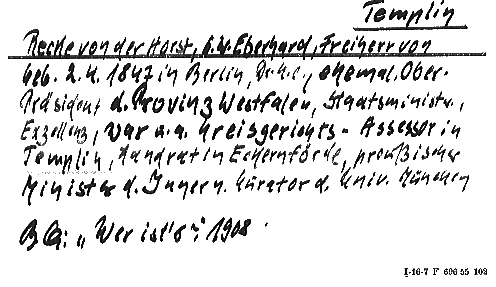 Templin
Recke von der Horst, Eberhard, Freiherr von
geb. 2.4.1847 in Berlin, Dr.h.c., ehemal. Ober-
Präsident d. Provinz Westfalen, Staatsminister,
Exzellenz, war u.a. Kreisgerichts-Assessor in
Templin, Landrat in Eckernförde, preußischer
Minister d. Innern. Kurator d. Univ. München
BG: „Wer ist's“: 1908.
I-16-7 F 696 55 102